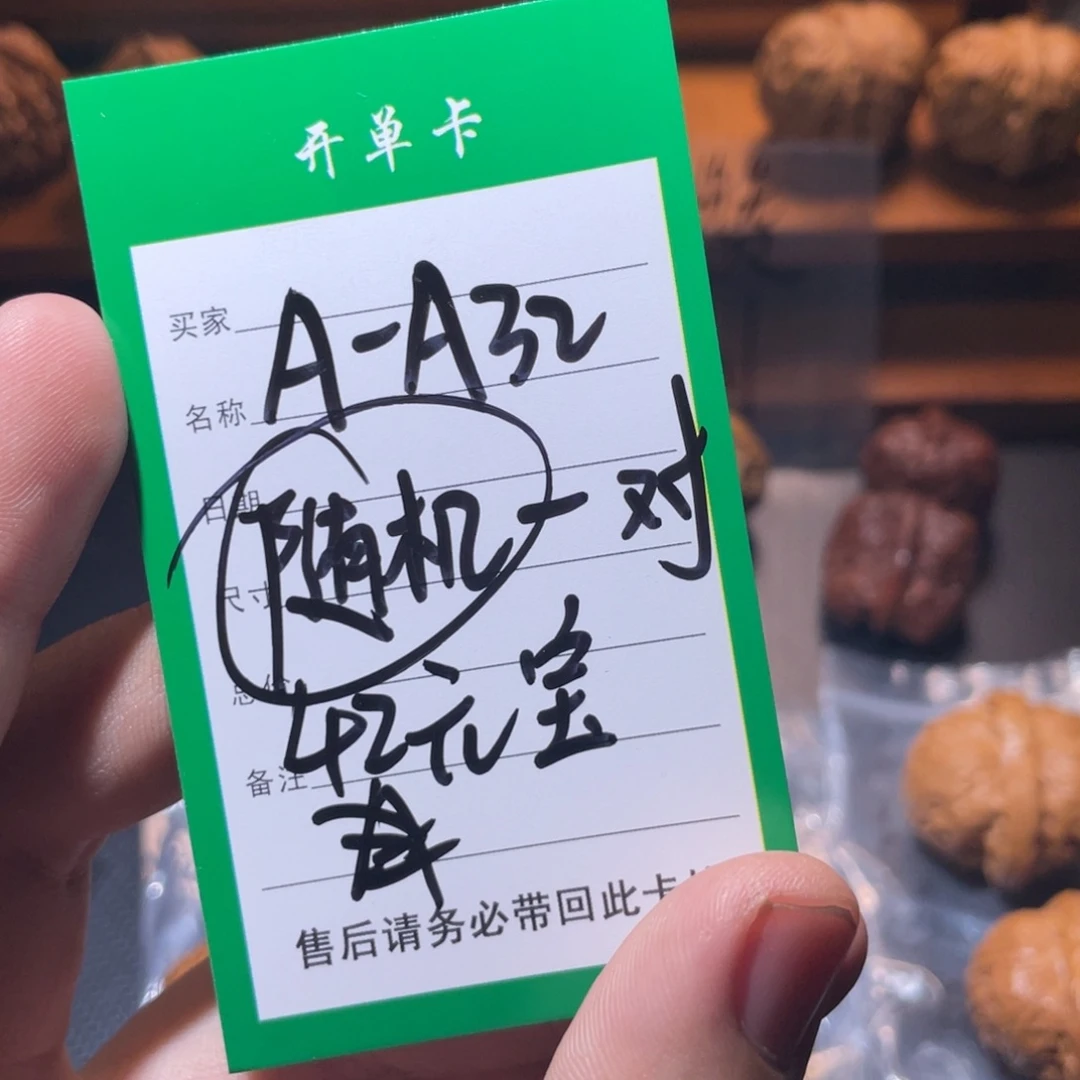 开单卡
买家 A-A32
名称
日期
随机一对
尺寸
总价
42元宝
备注
售后请务必带回此卡